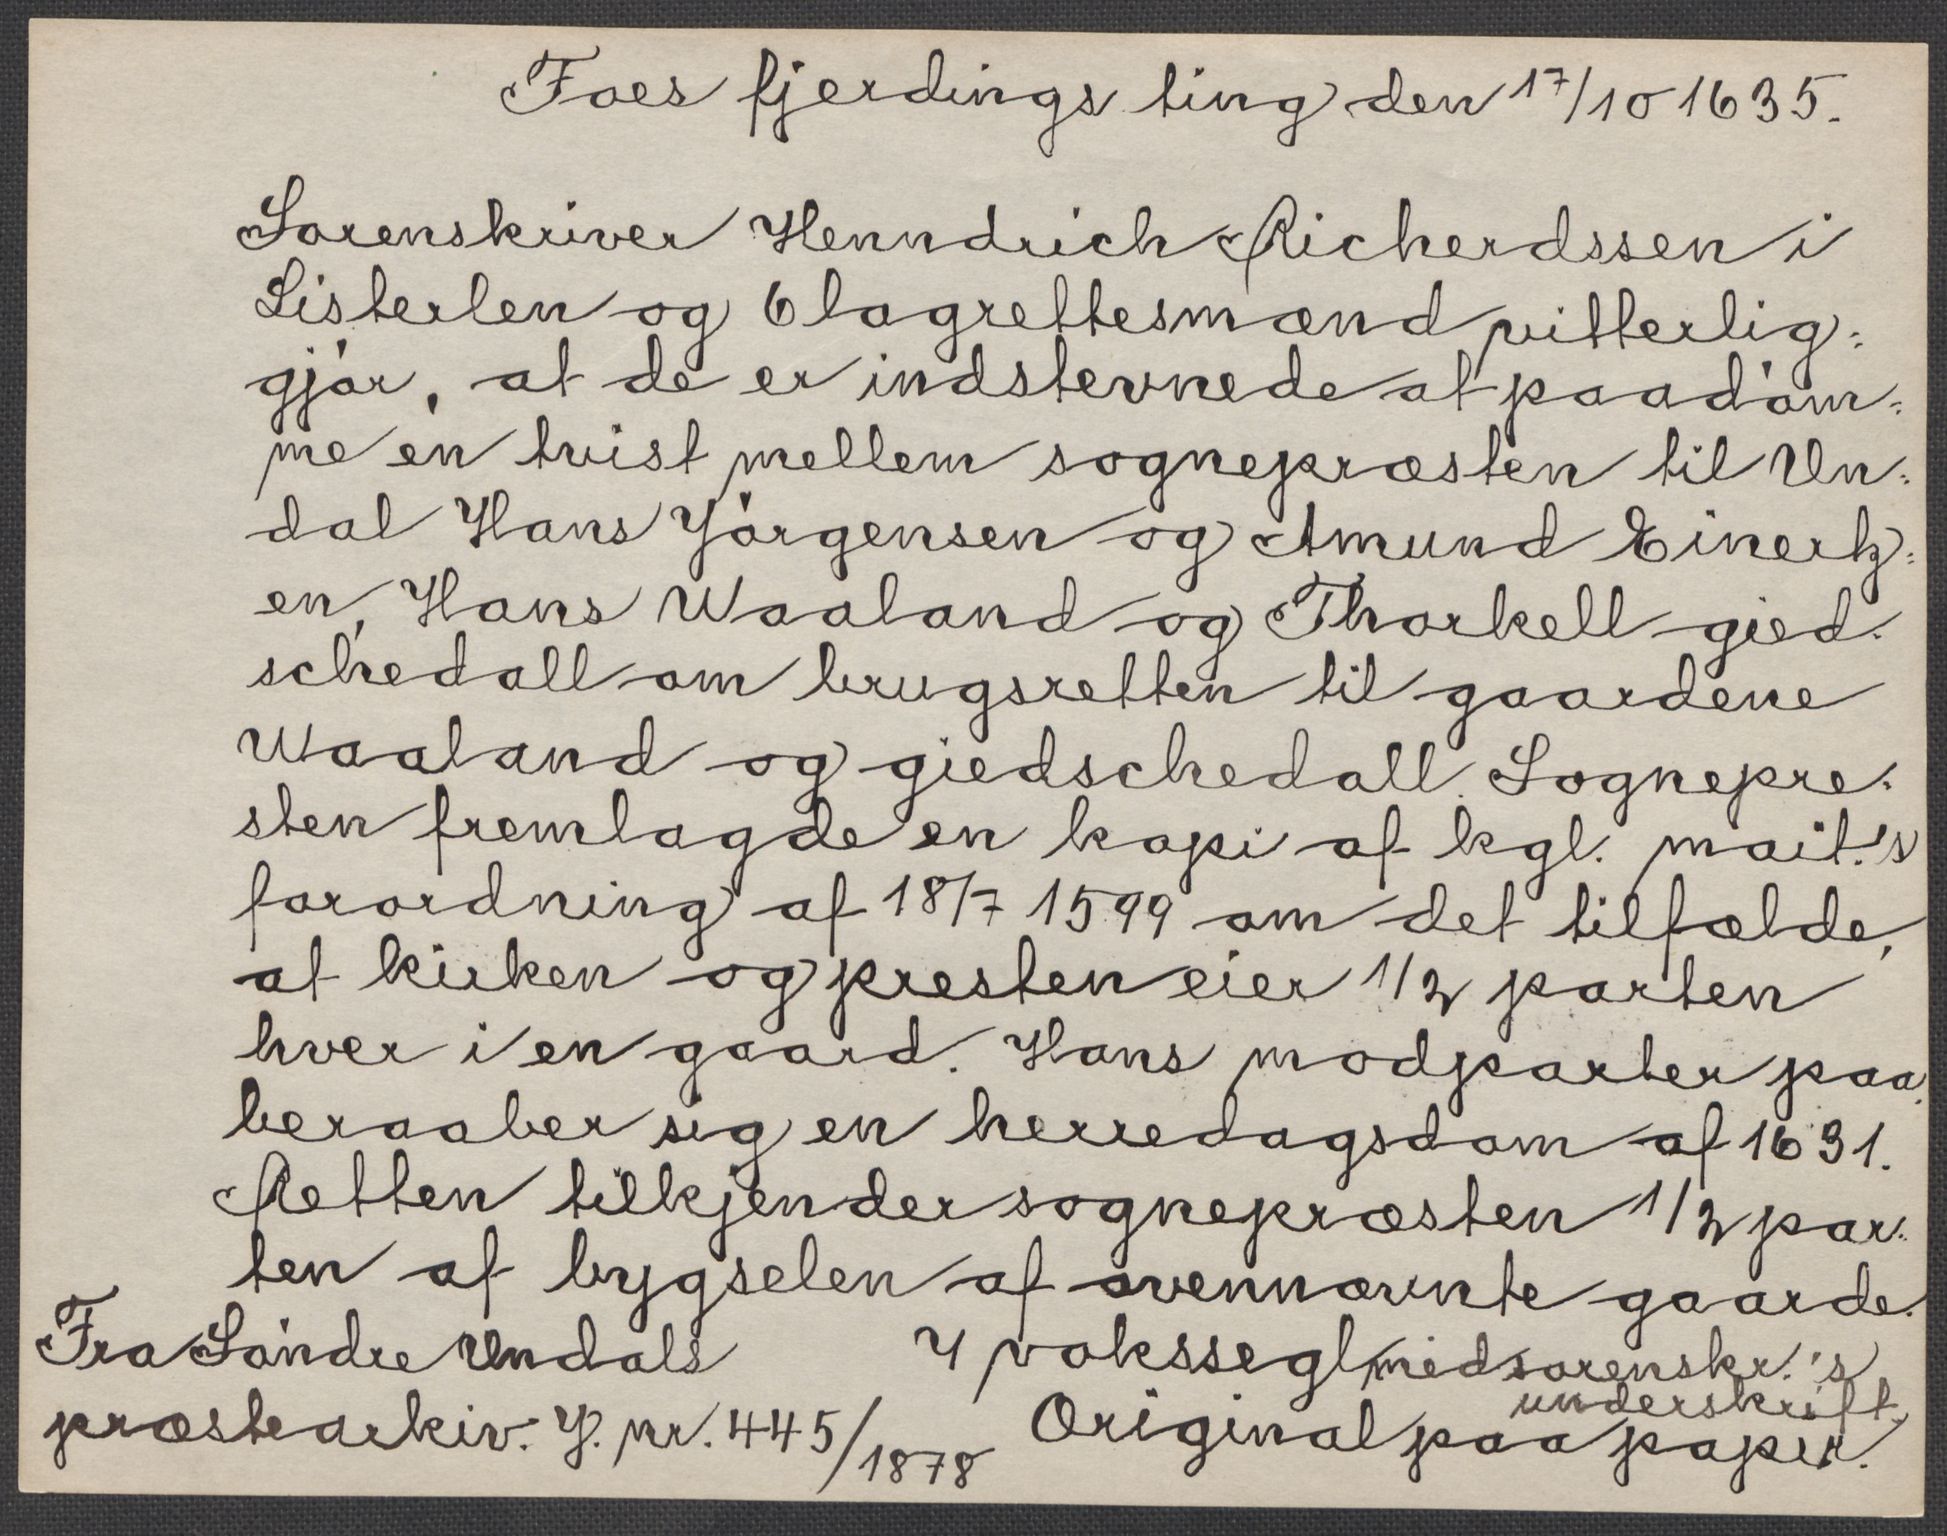 Foes fjerdings ting den 17/10 1635.
Sorenskriver Henndrich Richerdssen i
Listerlen og 6 lagrettesmænd vitterlig=
gjör, at de er indstevnede at paadöm=
me en tvist mellem sognepræsten til Un=
dal Hans Jörgensen og Amund Einertz=
en, Hans Waaland og Thorkell gied=
schedall om brugsretten til gaardene
Waaland og giedschedall. Sognepre=
sten fremlagde en kopi af kgl. mait.'s
forordning af 18/7 1599 om det tilfælde,
at kirken og presten eier 1/2 parten
hver i en gaard. Hans modparter paa=
beraaber sig en herredagsdom af 1631.
Retten tilkjender sognepræsten 1/2 par=
ten af bygselen af ovennævnte gaarde.
Fra Söndre Undals 4 vokssegl med sorenskr.'s
underskrift.
præstearkiv. J. nr. 445/1878 Original paa papir.